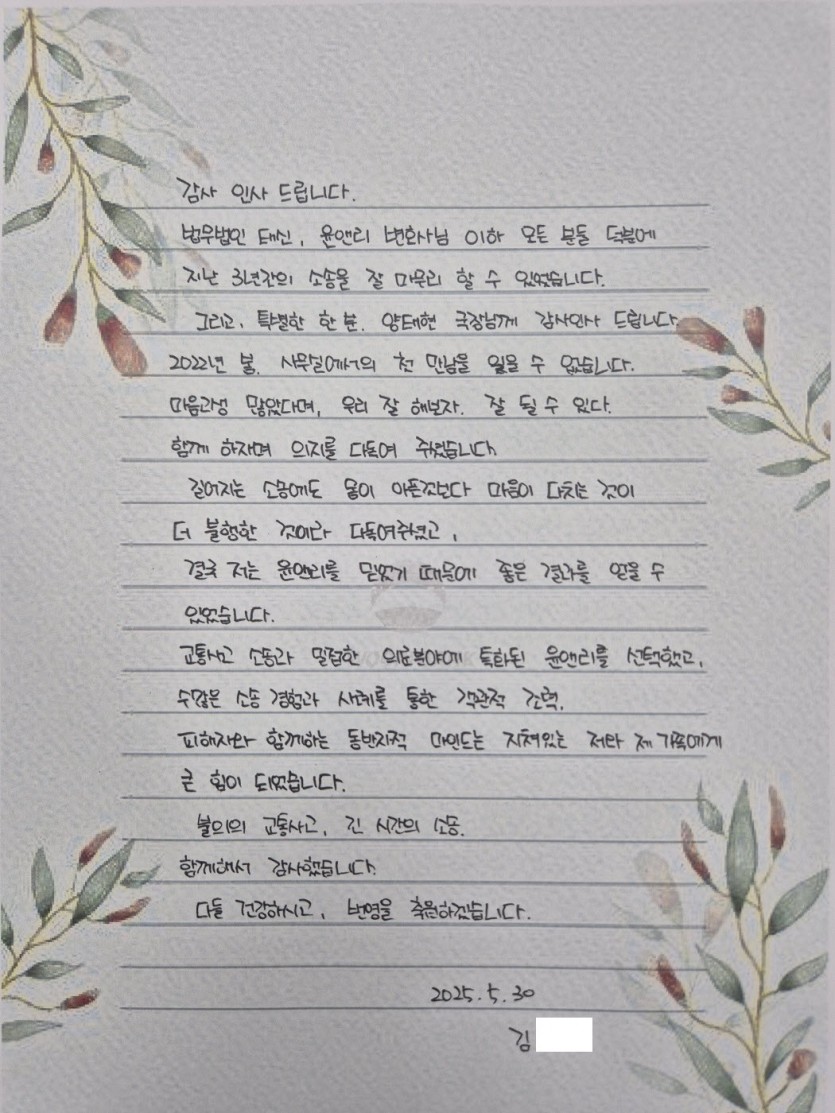 감사 인사 드립니다.
법무법인 태신, 윤앤리 변호사님 이하 모든 분들 덕분에
지난 3년간의 소송을 잘 마무리 할 수 있었습니다.
그리고, 특별한 한 분. 양태현 국장님께 감사인사 드립니다
2022년 봄. 사무실에서의 첫 만남을 잊을 수 없습니다.
마음고생 많았다며, 우리 잘 해보자. 잘 될 수 있다.
함께 하자며 의지를 다독여 주셨습니다.
길어지는 소송에도 몸이 아픈것보다 마음이 다치는 것이
더 불행한 것이라 다독여주셨고,
결국 저는 윤앤리를 믿었기 때문에 좋은 결과를 얻을 수
있었습니다.
교통사고 소송과 밀접한 의료분야에 특화된 윤앤리를 선택했고,
수많은 소송 경험과 사례를 통한 객관적 조력.
피해자와 함께하는 동반자적 마인드는 지쳐있는 저와 제 가족에게
큰 힘이 되었습니다.
불의의 교통사고, 긴 시간의 소송.
함께해서 감사했습니다.
다들 건강하시고, 번영을 축원하겠습니다.
2025.5.30
김